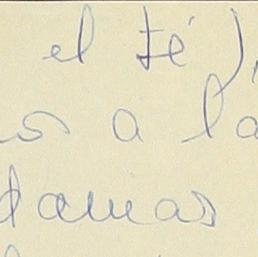 el té),
a la
damas